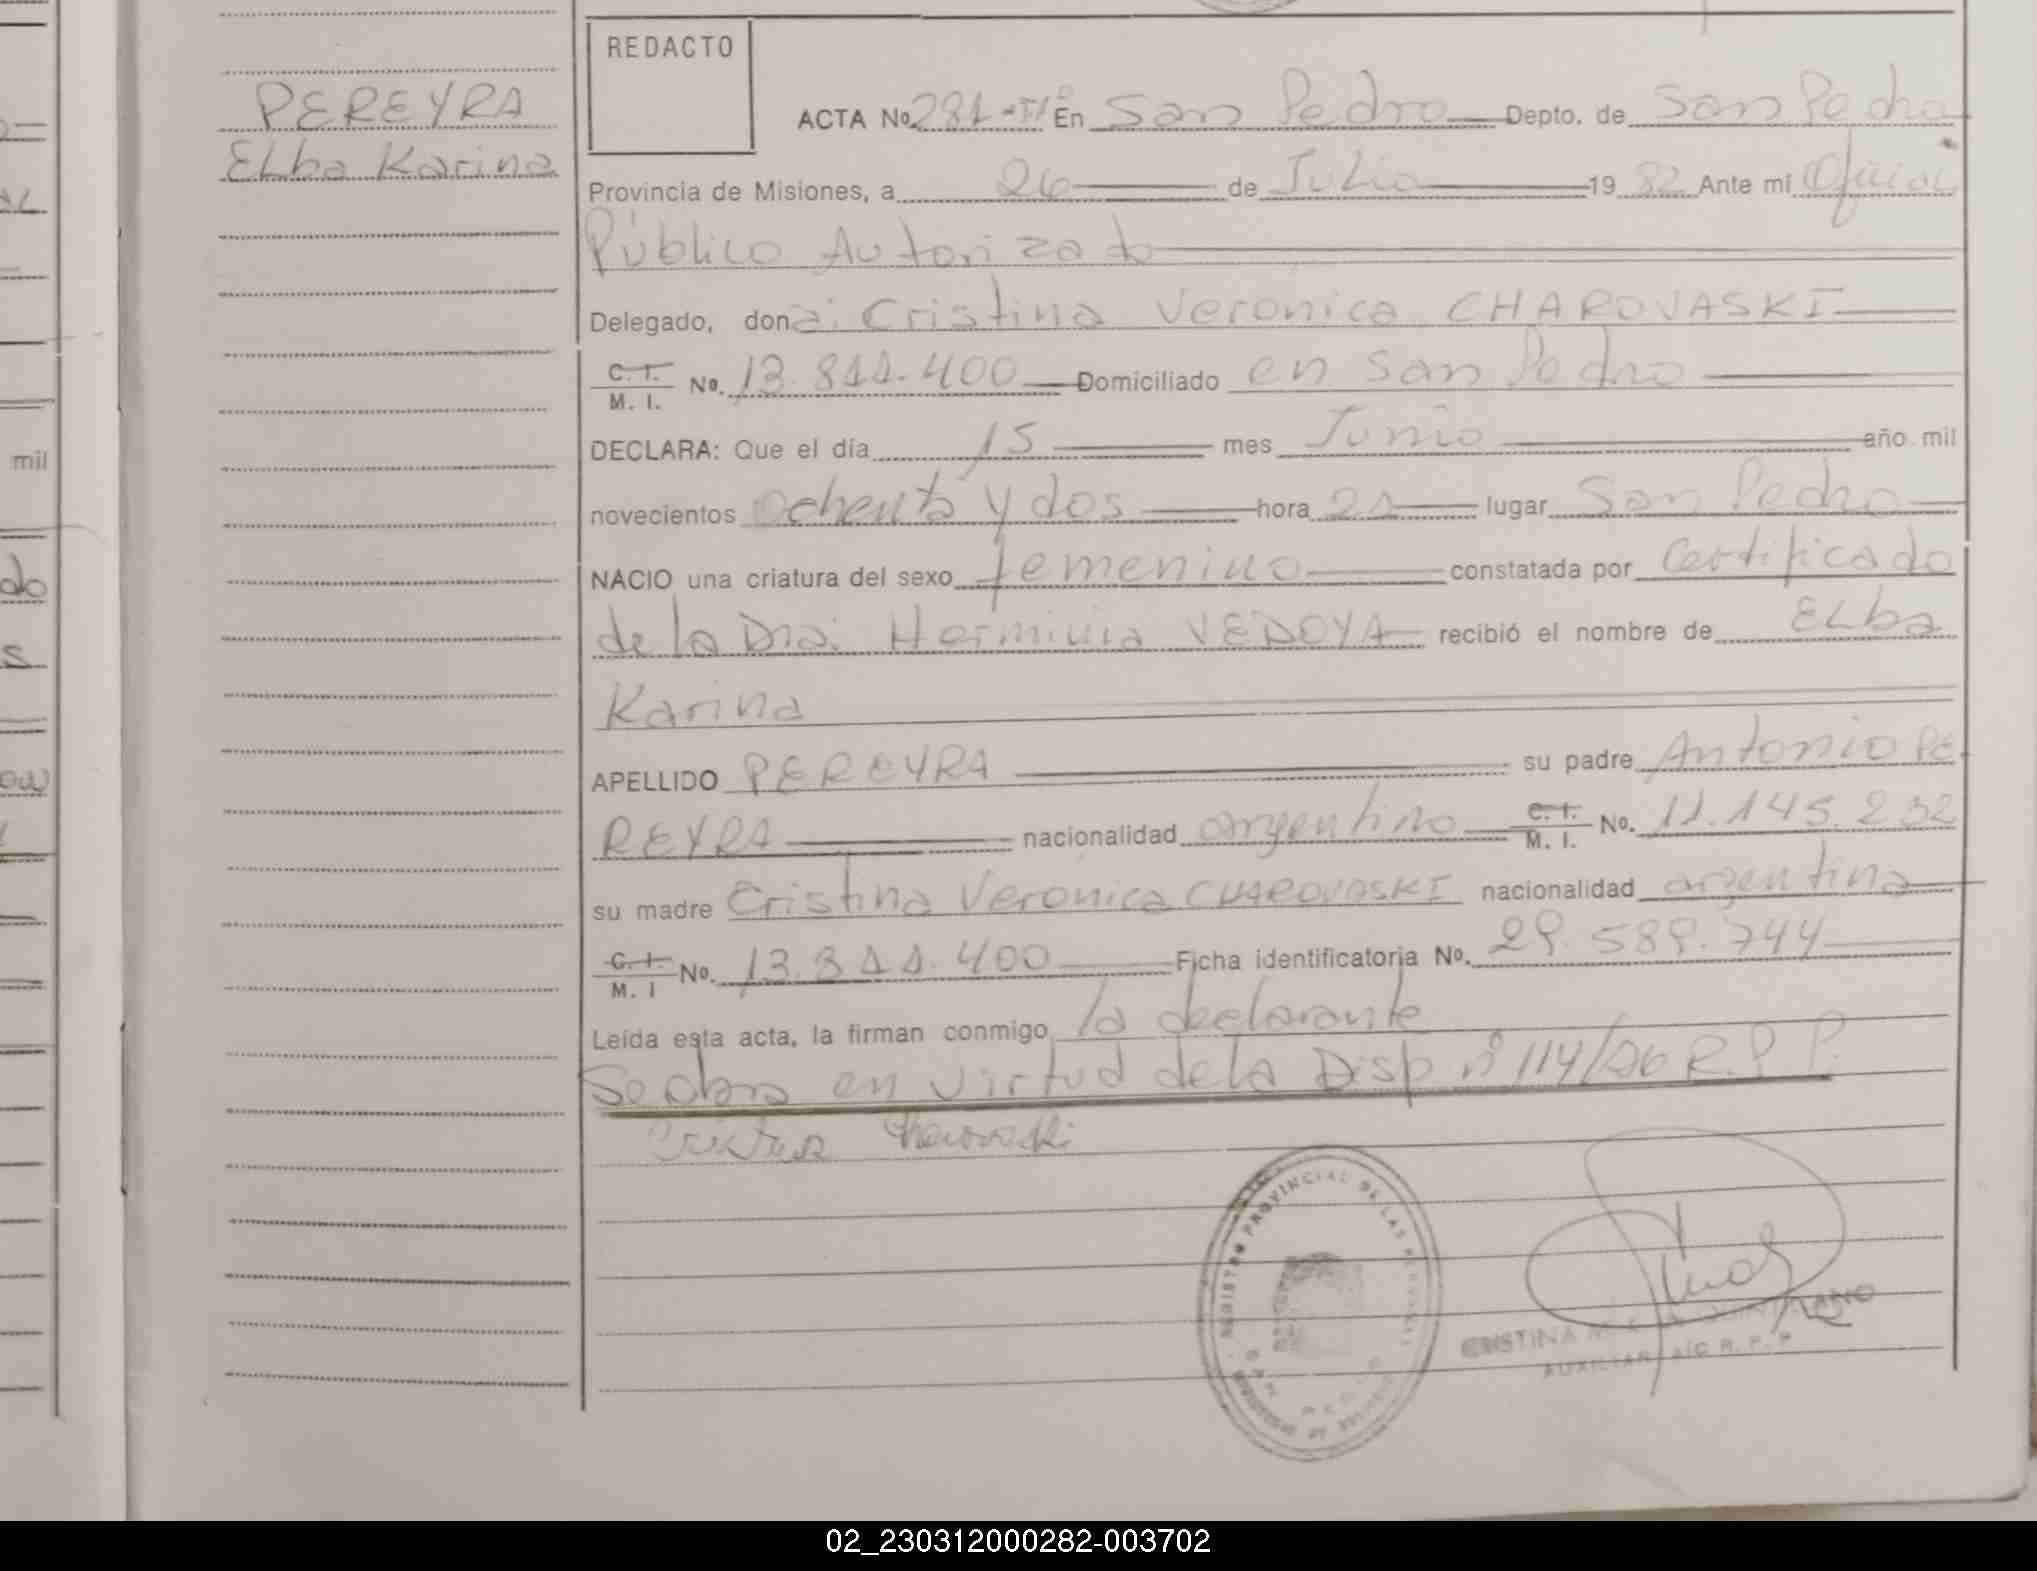 REDACTO
PEREYRA
Elba Karina
ACTA No. 281-Tº En San Pedro Depto. de San Pedro
Provincia de Misiones, a 26 de Julio 19 82 Ante mi Oficial
Público Autorizado
Delegado, doña: Cristina Veronica CHAROVASKI
C. I. M. I. No. 13.811.400 Domiciliado en San Pedro
DECLARA: Que el día 15 mes Junio año mil
novecientos ochenta y dos hora 21 lugar San Pedro
NACIO una criatura del sexo femenino constatada por Certificado
de la Dra. Herminia VEDOYA recibió el nombre de Elba
Karina
APELLIDO PEREYRA su padre Antonio PE
REYRA nacionalidad argentino C. I. M. I. No. 11.145.232
su madre Cristina Veronica CHAROVASKI nacionalidad argentina
C. I. M. I No. 13.811.400 Ficha identificatoria No. 29.589.744
Leída esta acta, la firman conmigo la declarante
Se obra en virtud de la Disp nº 114/ R.P.P.
Cristina Charovaski
REGISTRO PROVINCIAL DE LAS PERSONAS
CRISTINA
AUXILIAR A/C R. P. P.
mil
do
s
02_230312000282-003702